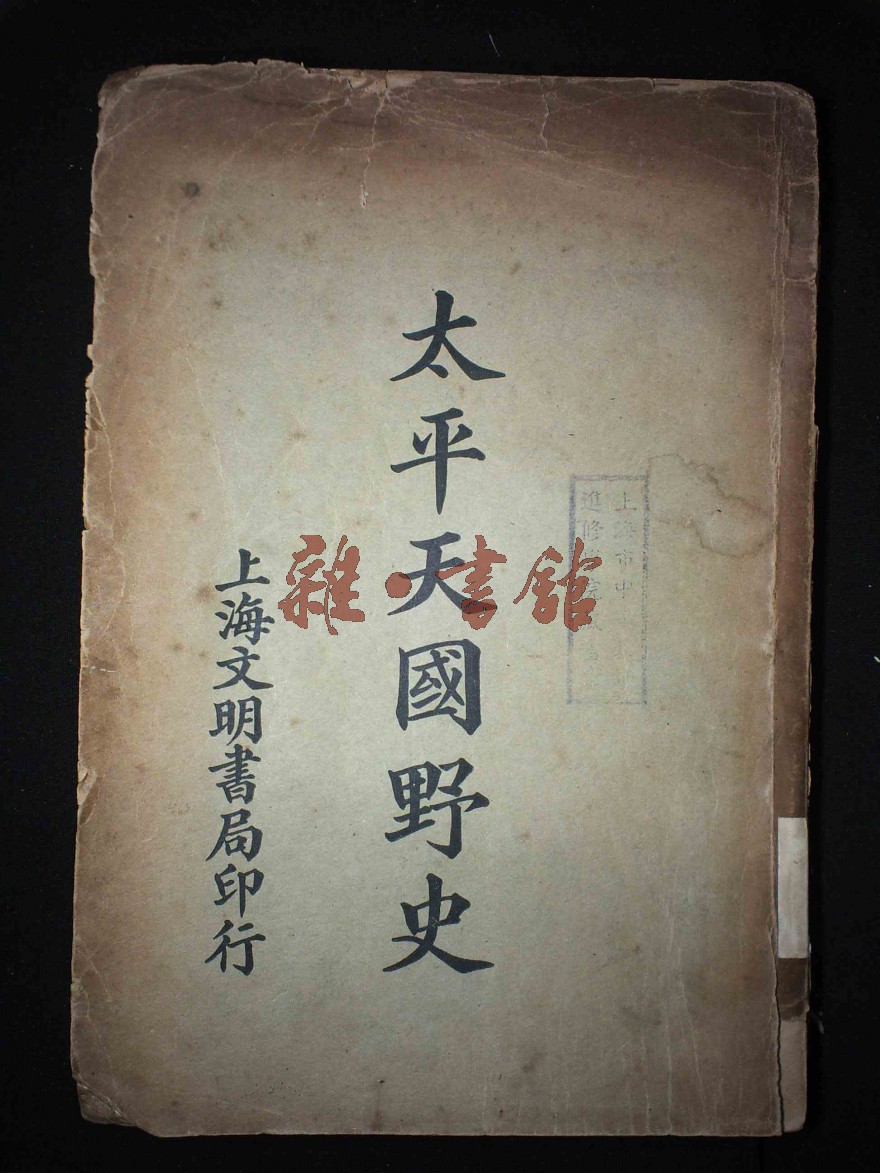 上海市中
進修
太平天國野史
上海文明書局印行
雜·書館